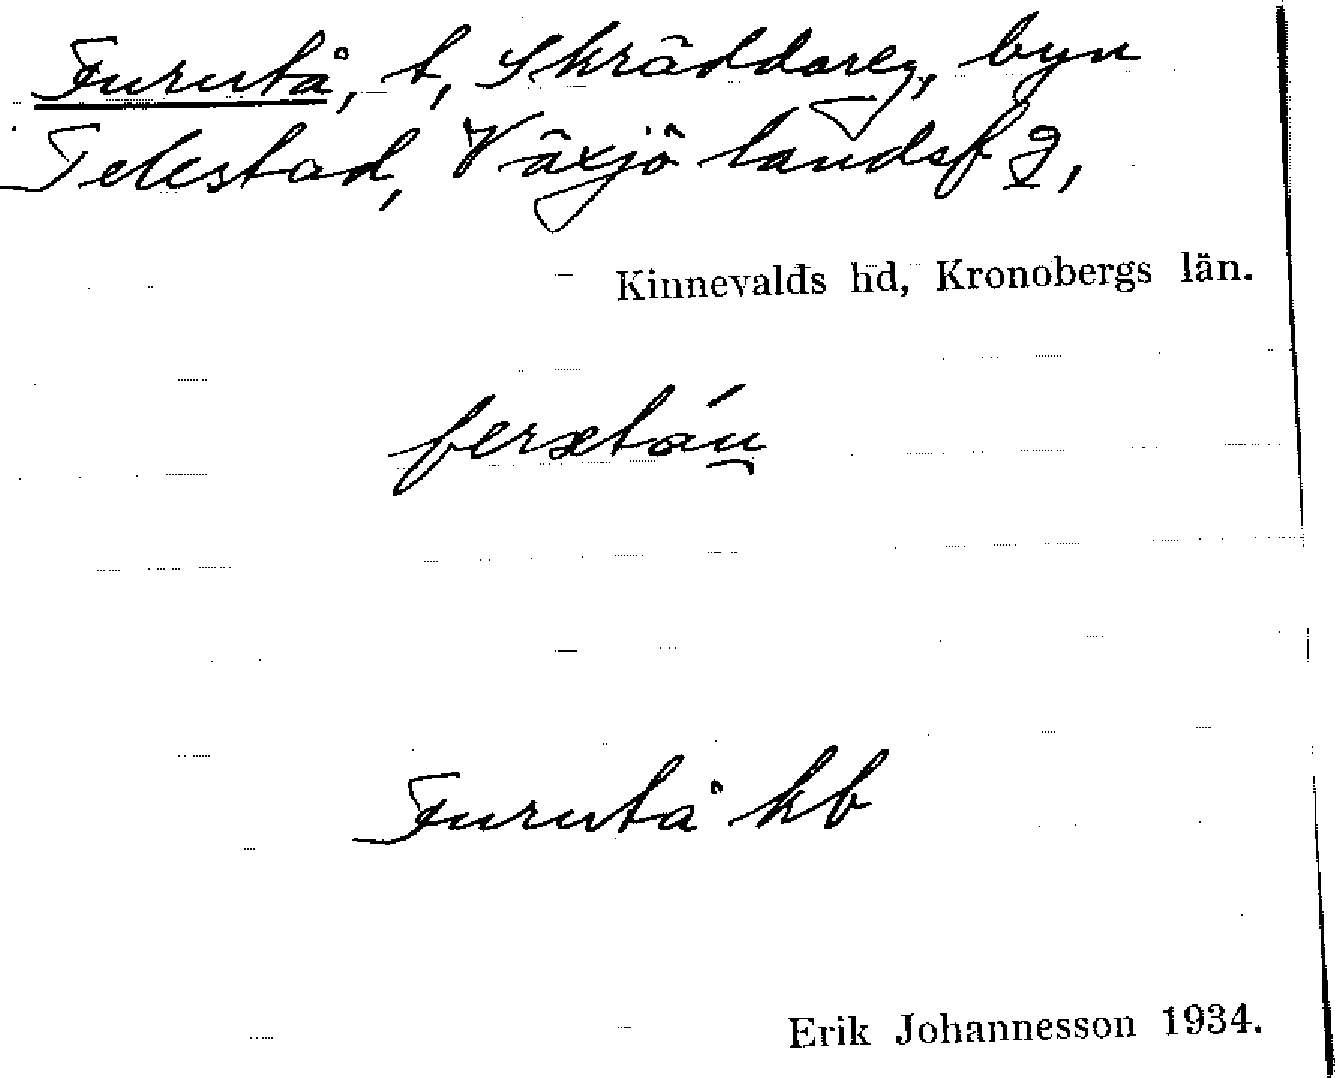 Furutå, t, Skräddareg, byn
Telestad, Växjö landsf 2,
Kinnevalds hd, Kronobergs län.
Furutå kb
Erik Johannesson 1934.